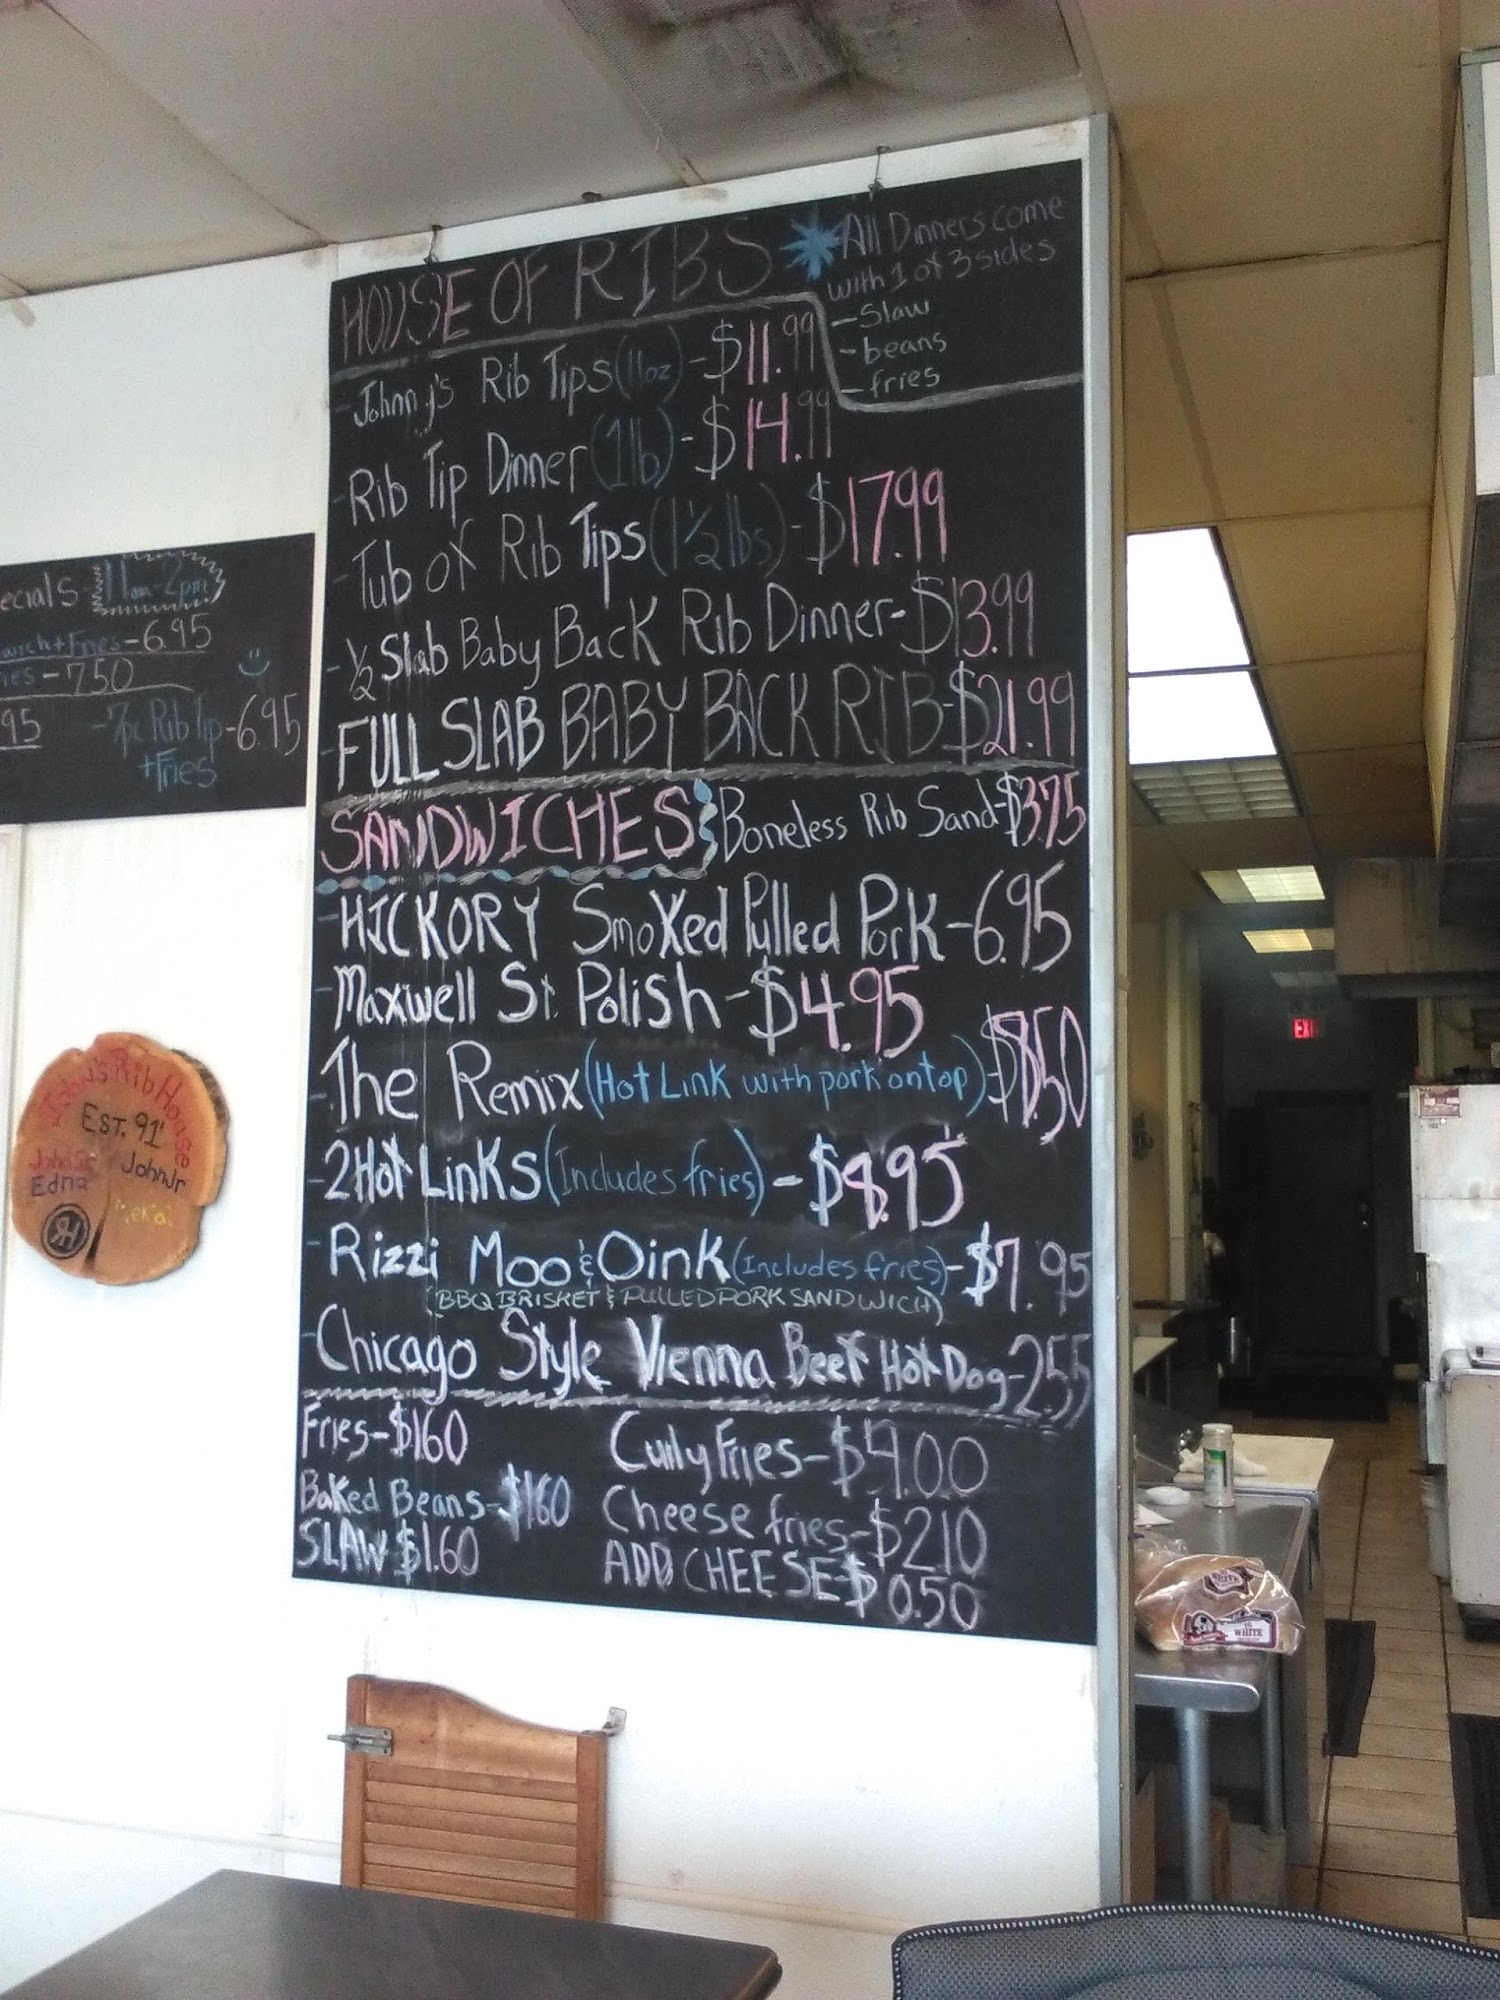 HOUSE OF RIBS
All Dinners come
with 1 of 3 sides
- Slaw
- beans
- fries
- Johnny's Rib Tips (11oz) - $11.99
- Rib Tip Dinner (1lb) - $14.99
- Tub of Rib Tips (1 1/2 lbs) - $17.99
- 1/2 Slab Baby Back Rib Dinner - $13.99
- FULL SLAB BABY BACK RIB - $21.99
SANDWICHES
Boneless Rib Sand - $3.75
- HICKORY Smoked Pulled Pork - 6.95
- Maxwell St. Polish - $4.95
- The Remix (Hot Link with pork on top) - $8.50
- 2 Hot Links (Includes fries) - $8.95
- Rizzi Moo & Oink (Includes fries) - $7.95
(BBQ BRISKET & PULLED PORK SANDWICH)
- Chicago Style Vienna Beef Hot Dog - 2.55
Fries - $1.60
Baked Beans - $1.60
SLAW $1.60
Curly Fries -
Cheese fries - $2.10
ADD CHEESE - $0.50
ecials 11am - 2pm
wich + Fries - 6.95
ies - 7.50
95
- 7pc Rib Tip - 6.95
+ Fries
John's Rib House
EST. 91'
John Sr
Edna
John Jr
RH
EXI
WHITE